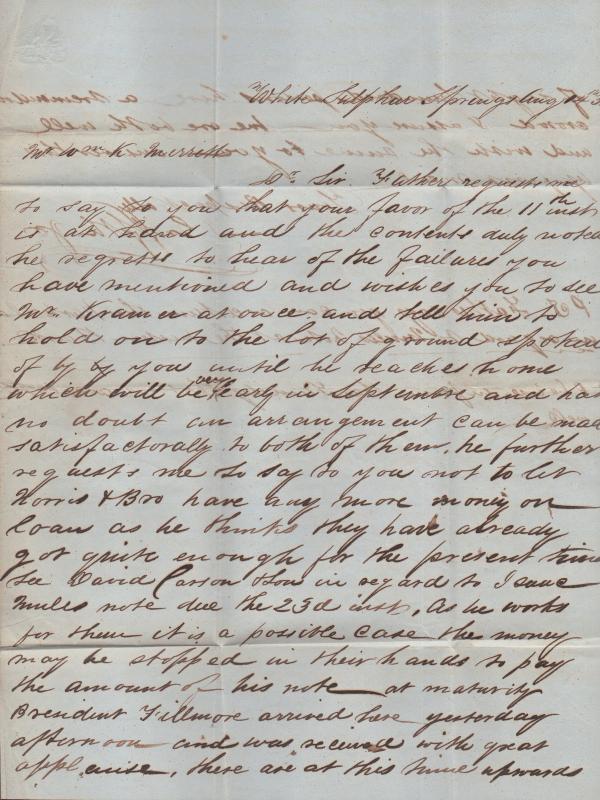 White Sulphur Springs Aug 14th
Mr Wm K. Merritt
Dr Sir. Father requests me
to say to you that your favor of the 11th inst
is at hand and the contents duly noted
he regrets to hear of the failures you
have mentioned and wishes you to see
Mr Kramer at once and tell him to
hold on to the lot of ground spoken
of by by you until he reaches home
which will be very early in Septembre and has
no doubt an arrangement can be made
satisfactorally to both of them. he further
requests me to say to you not to let
Norris & Bro have any more money on
loan as he thinks they have already
got quite enough for the present time
See David Carson & Son in regard to Isaac
Mules note due the 23d inst, As he works
for them it is a possible case the money
may be stopped in their hands to pay
the amount of his note at maturity
President Fillmore arrived here yesterday
afternoon and was received with great
applause, there are at this time upwards